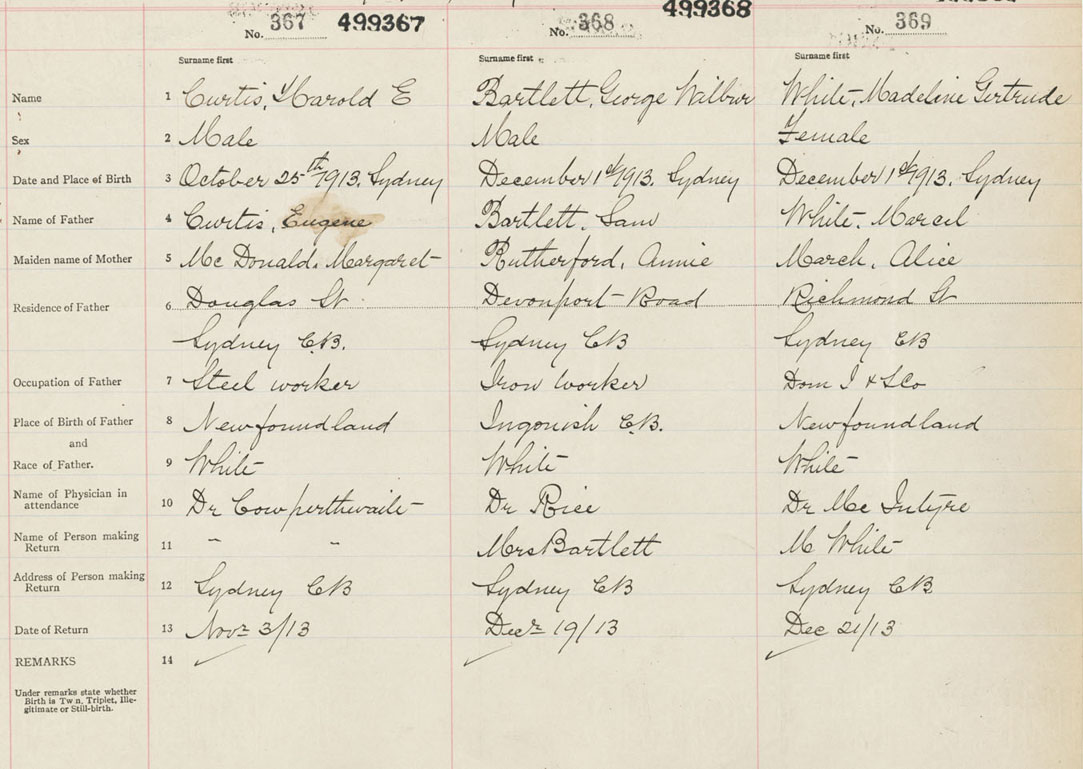 No. 367 499367 No. 368 499368 No. 369
Surname first Surname first Surname first
Name 1 Curtis, Harold E Bartlett, George Wilbur White, Madeline Gertrude
Sex 2 Male Male Female
Date and Place of Birth 3 October 25th 1913. Sydney December 1st 1913. Sydney December 1st 1913. Sydney
Name of Father 4 Curtis, Eugene Bartlett, Sam White. Marcil
Maiden name of Mother 5 Mc Donald. Margaret Rutherford, Annie March, Alice
Residence of Father 6 Douglas St Devonport Road Richmond St
Sydney C.B. Sydney CB Sydney CB
Occupation of Father 7 Steel worker Iron Worker Dom I & S Co
Place of Birth of Father 8 Newfoundland Ingonish C.B. Newfoundland
and
Race of Father. 9 White White White
Name of Physician in attendance 10 Dr Cowperthwaite Dr Rice Dr Mc Intyre
Name of Person making Return 11 " " Mrs Bartlett M White
Address of Person making Return 12 Sydney CB Sydney CB Sydney CB
Date of Return 13 Novr 3/13 Decr 19/13 Dec 21/13
REMARKS 14
Under remarks state whether
Birth is Tw n, Triplet, Ille-
gitimate or Still-birth.